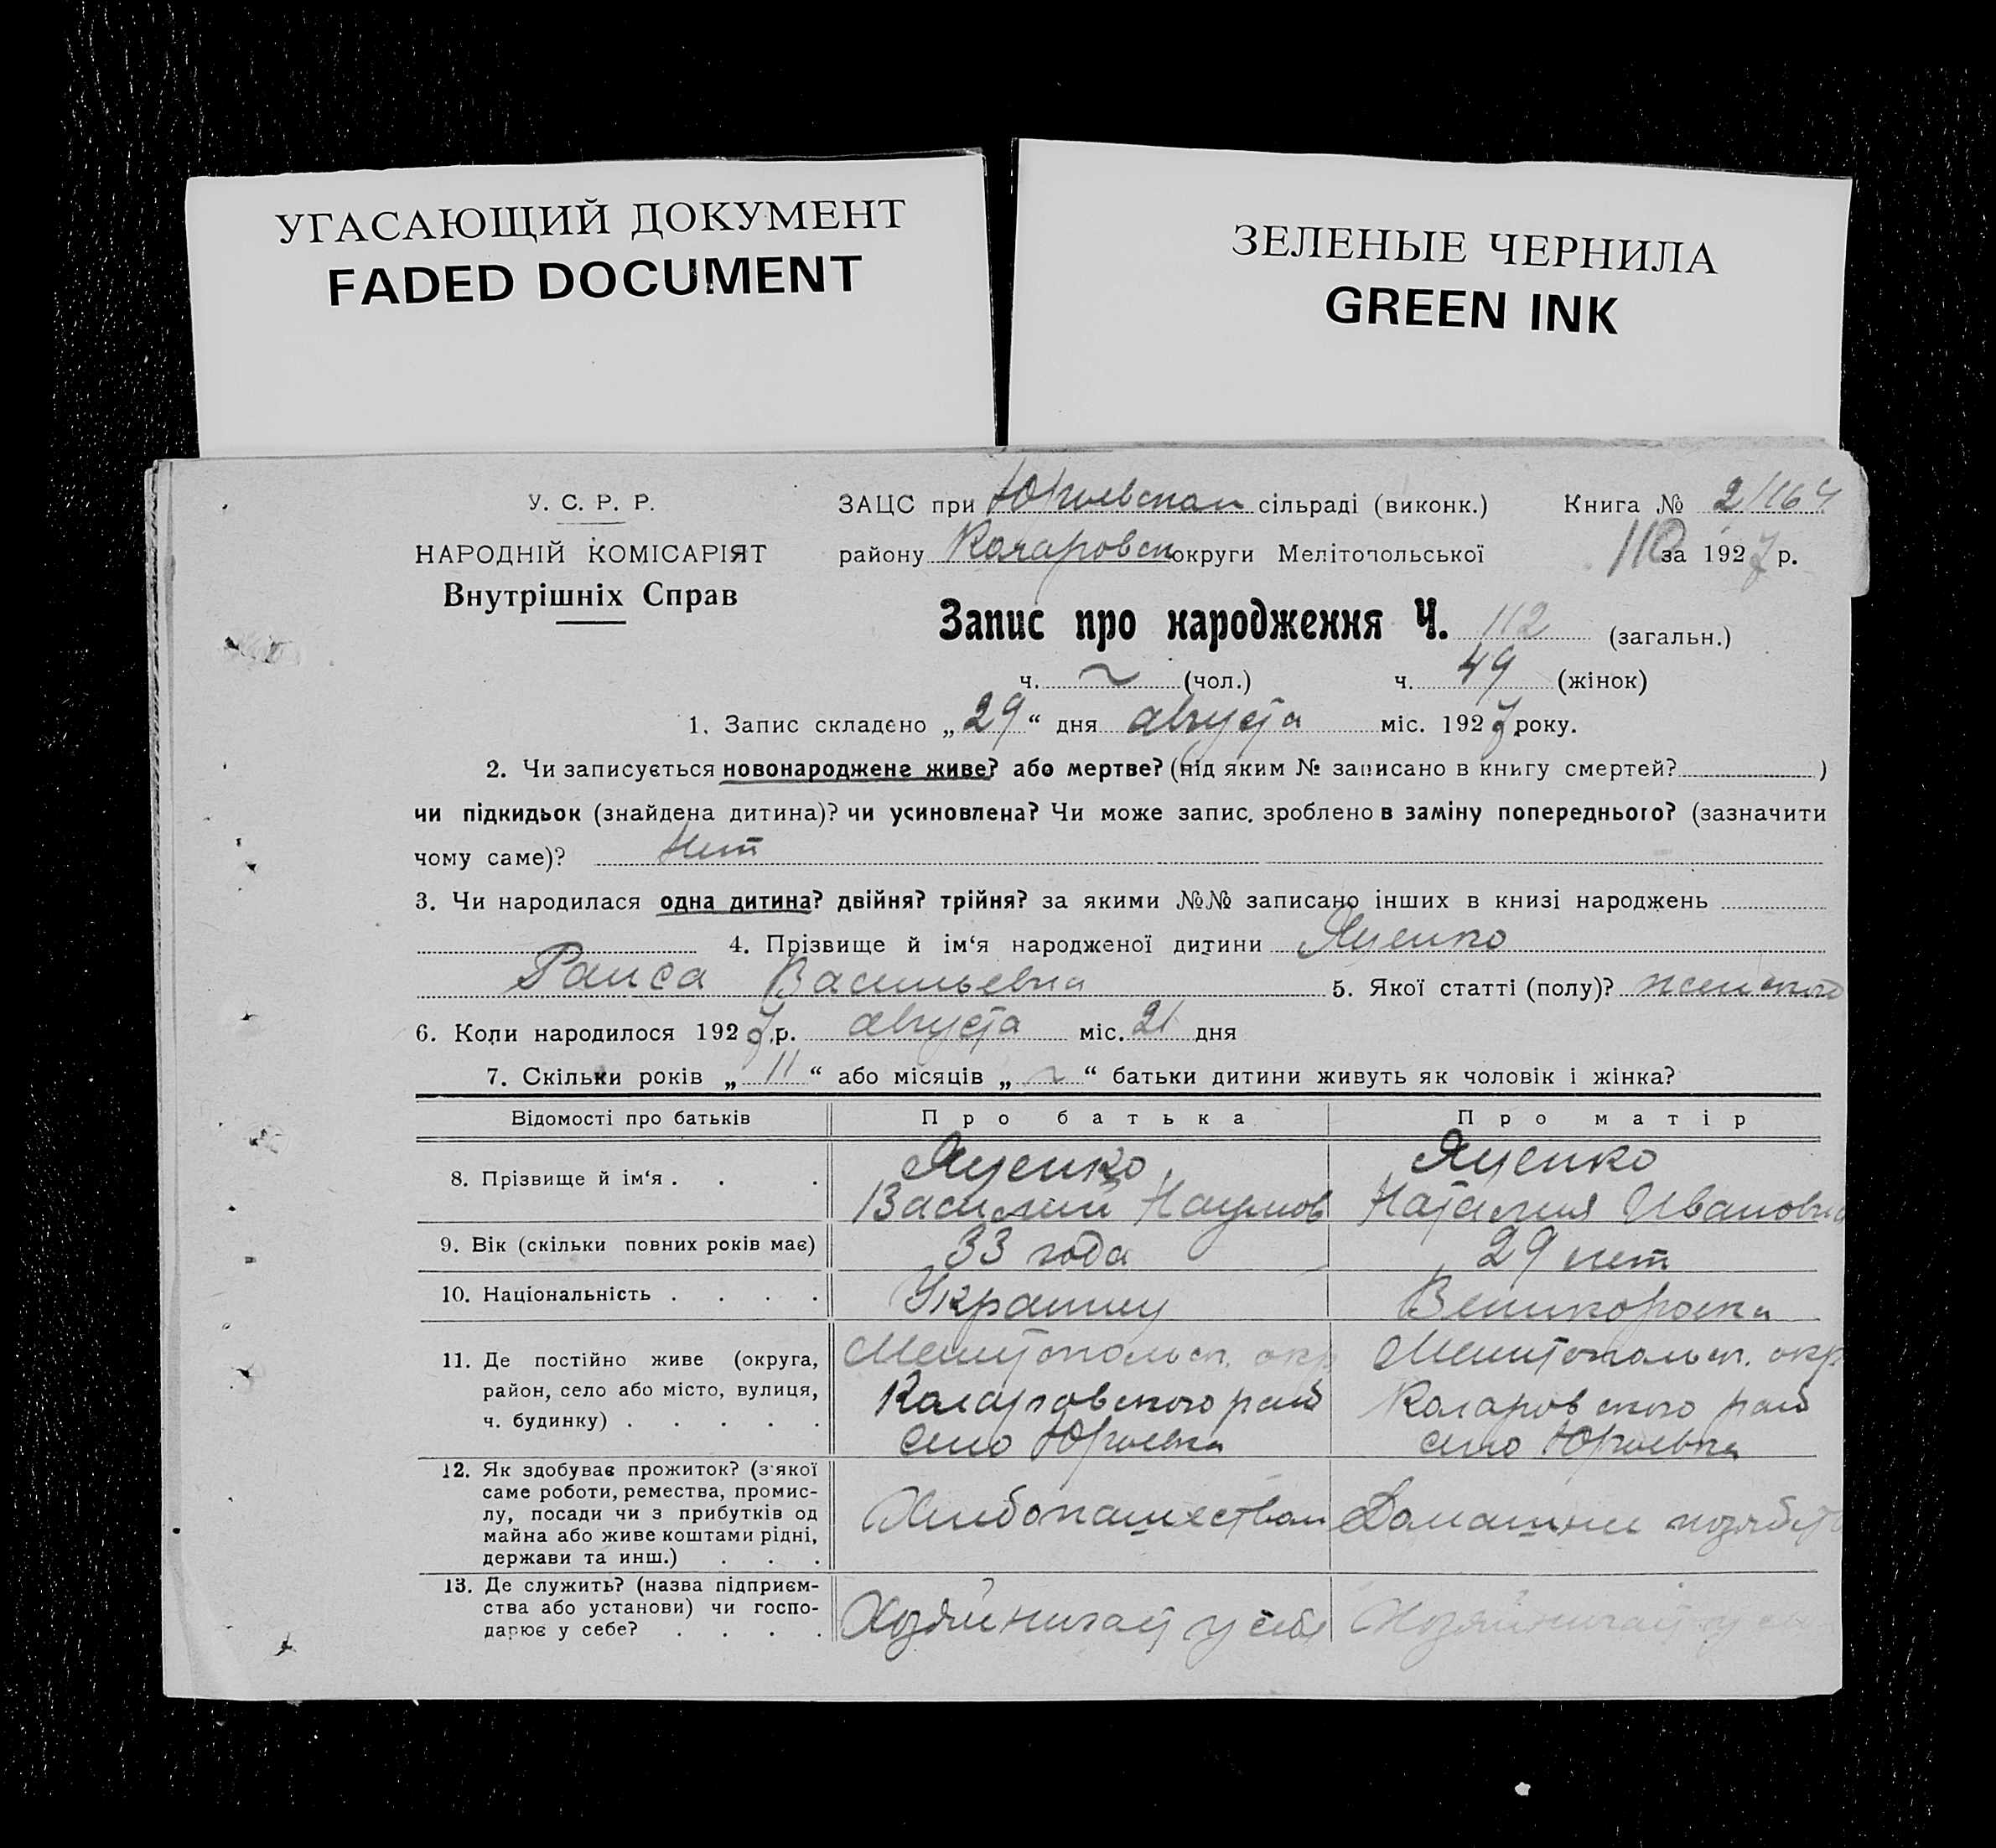 УГАСАЮЩИЙ ДОКУМЕНТ
FADED DOCUMENT
ЗЕЛЕНЫЕ ЧЕРНИЛА
GREEN INK
У. С. Р. Р.
НАРОДНІЙ КОМІСАРІЯТ
Внутрішніх Справ
ЗАЦС при Юрьевском сільраді (виконк.) Книга № 2/164
району Коларовск округи Мелітопольської 110 за 1927 р.
Запис про народження Ч. 112 (загальн.)
ч. ~ (чол.) ч. 49 (жінок)
1. Запис складено „29“ дня августа міс. 1927 року.
2. Чи записується новонароджене живе? або мертве? (під яким № записано в книгу смертей? )
чи підкидьок (знайдена дитина)? чи усиновлена? Чи може запис, зроблено в заміну попереднього? (зазначити
чому саме)? Нет
3. Чи народилася одна дитина? двійня? трійня? за якими №№ записано інших в книзі народжень
4. Прізвище й ім‘я народженої дитини Яценко
Раиса Васильевна 5. Якої статті (полу)? женского
6. Коли народилося 1927 р. августа міс. 21 дня
7. Скільки років „11“ або місяців „~“ батьки дитини живуть як чоловік і жінка?
Відомості про батьків Про батька Про матір
8. Прізвище й ім‘я . . . Яценко Василий Наумов Яценко Наталия Ивановна
9. Вік (скільки повних років має) 33 года 29 лет
10. Національність . . . . Украинец Великороска
11. Де постійно живе (округа, Мелитопольск. окр Мелитопольск. окр
район, село або місто, вулиця, Коларовского рай Коларовского рай
ч. будинку) . . . . . село Юрьевка село Юрьевка
12. Як здобуває прожиток? (з якої
саме роботи, ремества, промис-
лу, посади чи з прибутків од Хлебопашеством Домашнее
майна або живе коштами рідні,
держави та инш.) . . .
13. Де служить? (назва підприєм-
ства або установи) чи госпо- Хозяйничает у себя Хозяйничает у
дарює у себе? . . . .